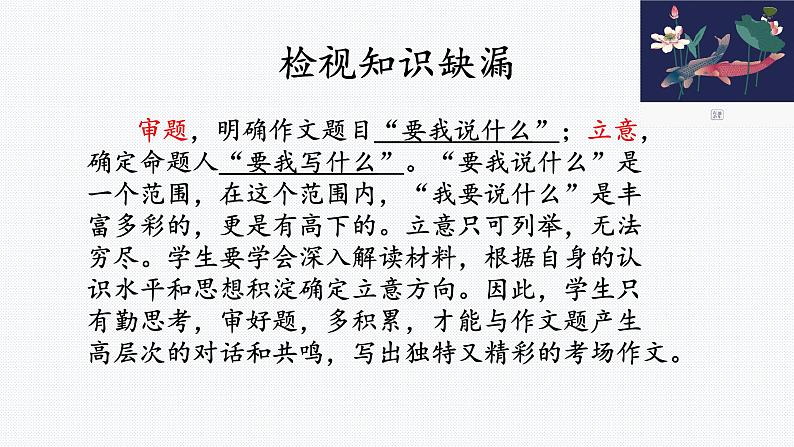 检视知识缺漏
审题，明确作文题目“要我说什么”；立意，
确定命题人“要我写什么”。“要我说什么”是
一个范围，在这个范围内，“我要说什么”是丰
富多彩的，更是有高下的。立意只可列举，无法
穷尽。学生要学会深入解读材料，根据自身的认
识水平和思想积淀确定立意方向。因此，学生只
有勤思考，审好题，多积累，才能与作文题产生
高层次的对话和共鸣，写出独特又精彩的考场作文。